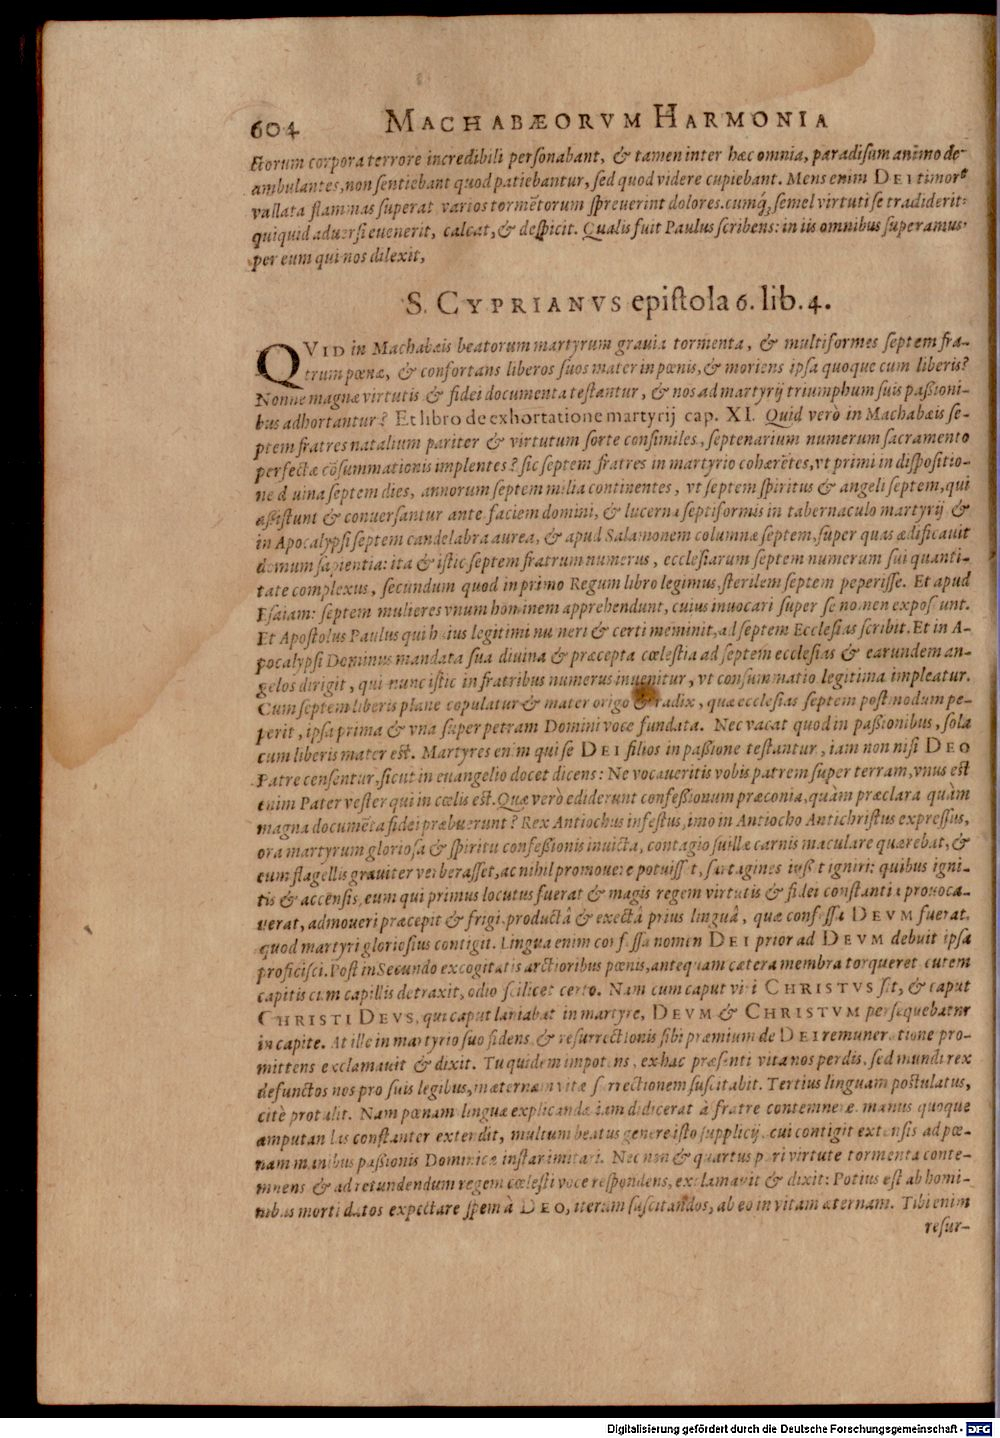 604 MACHABÆORVM HARMONIA
ctorum corpora terrore incredibili personabant, & tamen inter hæc omnia, paradisum animo de-
ambulantes, non sentiebant quod patiebantur, sed quod videre cupiebant. Mens enim DEI timore
vallata flammas superat varios tormẽtorum spreuerint dolores. cumq́; semel virtuti se tradiderit:
quiquid aduersi euenerit, calcat, & despicit. Qualis fuit Paulus scribens: in iis omnibus superamus.
per eum qui nos dilexit,
S. CYPRIANVS epistola 6. lib. 4.
QVID in Machabæis beatorum martyrum grauia tormenta, & multiformes septem fra-
trum pœnæ, & confortans liberos suos mater in pœnis, & moriens ipsa quoque cum liberis?
Nonne magnæ virtutis & fidei documenta testantur, & nos ad martyrij triumphum suis paßioni-
bus adhortantur? Et libro de exhortatione martyrij cap. XI. Quid verò in Machabæis se-
ptem fratres natalium pariter & virtutum sorte consimiles, septenarium numerum sacramento
perfectæ cõsummationis implentes? sic septem fratres in martyrio cohærẽtes, vt primi in dispositio-
ne diuina septem dies, annorum septem milia continentes, vt septem spiritus & angeli septem, qui
aßistunt & conuersantur ante faciem domini, & lucerna septiformis in tabernaculo martyrij &
in Apocalypsi septem candelabra aurea, & apud Salamonem columnæ septem, super quas ædificauit
domum sapientia: ita & istic septem fratrum numerus, ecclesiarum septem numerum sui quanti-
tate complexus, secundum quod in primo Regum libro legimus, sterilem septem peperisse. Et apud
Esaiam: septem mulieres vnum hominem apprehendunt, cuius inuocari super se nomen exposcunt.
Et Apostolus Paulus qui huius legitimi numeri & certi meminit, ad septem Ecclesias scribit. Et in A-
pocalypsi Dominus mandata sua diuina & præcepta cœlestia ad septem ecclesias & earundem an-
gelos dirigit, qui nunc istic in fratribus numerus inuenitur, vt consummatio legitima impleatur.
Cum septem liberis plane copulatur & mater origo & radix, quæ ecclesias septem postmodum pe-
perit, ipsa prima & vna super petram Domini voce fundata. Nec vacat quod in paßionibus, sola
cum liberis mater est. Martyres enim qui se DEI filios in paßione testantur, iam non nisi DEO
Patre censentur, sicut in euangelio docet dicens: Ne vocaueritis vobis patrem super terram, vnus est
enim Pater vester qui in cœlis est. Quæ verò ediderunt confeßionum præconia, quàm præclara quàm
magna documẽta fidei præbuerunt? Rex Antiochus infestus, imo in Antiocho Antichristus expressus,
ora martyrum gloriosa & spiritu confeßionis inuicta, contagio suillæ carnis maculare quærebat, &
cum flagellis grauiter verberasset, ac nihil promouere potuisset, sartagines iußit igniri: quibus igni-
tis & accensis, eum qui primus locutus fuerat & magis regem virtutis & fidei constantia prouoca-
uerat, admoueri præcepit & frigi, productâ & exectâ prius linguâ, quæ confessa DEVM fuerat,
quod martyri gloriosius contigit. Lingua enim confessa nomen DEI prior ad DEVM debuit ipsa
proficisci. Post in Secundo excogitatis arctioribus pœnis, antequam cætera membra torqueret cutem
capitis cum capillis detraxit, odio scilicet certo. Nam cum caput viri CHRISTVS sit, & caput
CHRISTI DEVS, qui caput laniabat in martyre, DEVM & CHRISTVM persequebatur
in capite. At ille in martyrio suo fidens & resurrectionis sibi præmium de DEI remuneratione pro-
mittens exclamauit & dixit. Tu quidem impotens, ex hac præsenti vita nos perdis, sed mundi rex
defunctos nos pro suis legibus, in æternam vitæ surrectionem suscitabit. Tertius linguam postulatus,
citè protulit. Nam pœnam linguæ explicandæ iam didicerat à fratre contemnere. manus quoque
amputandas constanter extendit, multum beatus genere isto supplicij, cui contigit extensis ad pœ-
nam manibus paßionis Dominicæ instar imitari. Nec non & quartus pari virtute tormenta conte-
mnens & ad retundendum regem cœlesti voce respondens, exclamauit & dixit: Potius est ab homi-
nibus morti datos expectare spem à DEO, iterum suscitandos, ab eo in vitam æternam. Tibi enim
resur-
Digitalisierung gefördert durch die Deutsche Forschungsgemeinschaft - DFG